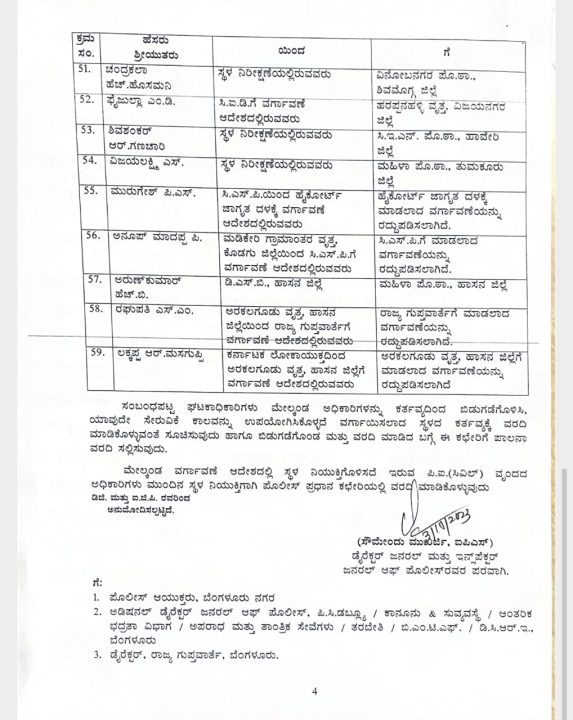 ಕ್ರಮ ಸಂ. ಹೆಸರು ಶ್ರೀಯುತರು ಯಿಂದ ಗೆ
51. ಚಂದ್ರಕಲಾ ಹೆಚ್.ಹೊಸಮನಿ ಸ್ಥಳ ನಿರೀಕ್ಷಣೆಯಲ್ಲಿರುವವರು ವಿನೋಬನಗರ ಪೊ.ಠಾ., ಶಿವಮೊಗ್ಗ ಜಿಲ್ಲೆ
52. ಫೈಜುಲ್ಲಾ ಎಂ.ಡಿ. ಸಿ.ಐ.ಡಿ.ಗೆ ವರ್ಗಾವಣೆ ಆದೇಶದಲ್ಲಿರುವವರು ಹರಪ್ಪನಹಳ್ಳಿ ವೃತ್ತ, ವಿಜಯನಗರ ಜಿಲ್ಲೆ
53. ಶಿವಶಂಕರ್ ಆರ್.ಗಣಚಾರಿ ಸ್ಥಳ ನಿರೀಕ್ಷಣೆಯಲ್ಲಿರುವವರು ಸಿ.ಇ.ಎನ್. ಪೊ.ಠಾ., ಹಾವೇರಿ ಜಿಲ್ಲೆ
54. ವಿಜಯಲಕ್ಷ್ಮಿ ಎಸ್. ಸ್ಥಳ ನಿರೀಕ್ಷಣೆಯಲ್ಲಿರುವವರು ಮಹಿಳಾ ಪೊ.ಠಾ., ತುಮಕೂರು ಜಿಲ್ಲೆ
55. ಮುರುಗೇಶ್ ಪಿ.ಎಸ್. ಸಿ.ಎಸ್.ಪಿ.ಯಿಂದ ಹೈಕೋರ್ಟ್ ಜಾಗೃತ ದಳಕ್ಕೆ ವರ್ಗಾವಣೆ ಆದೇಶದಲ್ಲಿರುವವರು ಹೈಕೋರ್ಟ್ ಜಾಗೃತ ದಳಕ್ಕೆ ಮಾಡಲಾದ ವರ್ಗಾವಣೆಯನ್ನು ರದ್ದುಪಡಿಸಲಾಗಿದೆ.
56. ಅನೂಪ್ ಮಾದಪ್ಪ ಪಿ. ಮಡಿಕೇರಿ ಗ್ರಾಮಾಂತರ ವೃತ್ತ, ಕೊಡಗು ಜಿಲ್ಲೆಯಿಂದ ಸಿ.ಎಸ್.ಪಿ.ಗೆ ವರ್ಗಾವಣೆ ಆದೇಶದಲ್ಲಿರುವವರು ಸಿ.ಎಸ್.ಪಿ.ಗೆ ಮಾಡಲಾದ ವರ್ಗಾವಣೆಯನ್ನು ರದ್ದುಪಡಿಸಲಾಗಿದೆ.
57. ಅರುಣ್‌ಕುಮಾರ್ ಹೆಚ್.ಬಿ. ಡಿ.ಎಸ್.ಬಿ., ಹಾಸನ ಜಿಲ್ಲೆ ಮಹಿಳಾ ಪೊ.ಠಾ., ಹಾಸನ ಜಿಲ್ಲೆ
58. ರಘುಪತಿ ಎಸ್.ಎಂ. ಅರಕಲಗೂಡು ವೃತ್ತ, ಹಾಸನ ಜಿಲ್ಲೆಯಿಂದ ರಾಜ್ಯ ಗುಪ್ತವಾರ್ತೆಗೆ ವರ್ಗಾವಣೆ ಆದೇಶದಲ್ಲಿರುವವರು ರಾಜ್ಯ ಗುಪ್ತವಾರ್ತೆಗೆ ಮಾಡಲಾದ ವರ್ಗಾವಣೆಯನ್ನು ರದ್ದುಪಡಿಸಲಾಗಿದೆ.
59. ಲಕ್ಕಪ್ಪ ಆರ್.ಮಸಗುಪ್ಪಿ ಕರ್ನಾಟಕ ಲೋಕಾಯುಕ್ತದಿಂದ ಅರಕಲಗೂಡು ವೃತ್ತ, ಹಾಸನ ಜಿಲ್ಲೆಗೆ ವರ್ಗಾವಣೆ ಆದೇಶದಲ್ಲಿರುವವರು ಅರಕಲಗೂಡು ವೃತ್ತ, ಹಾಸನ ಜಿಲ್ಲೆಗೆ ಮಾಡಲಾದ ವರ್ಗಾವಣೆಯನ್ನು ರದ್ದುಪಡಿಸಲಾಗಿದೆ
ಸಂಬಂಧಪಟ್ಟ ಘಟಕಾಧಿಕಾರಿಗಳು ಮೇಲ್ಕಂಡ ಅಧಿಕಾರಿಗಳನ್ನು ಕರ್ತವ್ಯದಿಂದ ಬಿಡುಗಡೆಗೊಳಿಸಿ,
ಯಾವುದೇ ಸೇರುವಿಕೆ ಕಾಲವನ್ನು ಉಪಯೋಗಿಸಿಕೊಳ್ಳದೆ ವರ್ಗಾಯಿಸಲಾದ ಸ್ಥಳದ ಕರ್ತವ್ಯಕ್ಕೆ ವರದಿ
ಮಾಡಿಕೊಳ್ಳುವಂತೆ ಸೂಚಿಸುವುದು ಹಾಗೂ ಬಿಡುಗಡೆಗೊಂಡ ಮತ್ತು ವರದಿ ಮಾಡಿದ ಬಗ್ಗೆ ಈ ಕಛೇರಿಗೆ ಪಾಲನಾ
ವರದಿ ಸಲ್ಲಿಸುವುದು.
ಮೇಲ್ಕಂಡ ವರ್ಗಾವಣೆ ಆದೇಶದಲ್ಲಿ ಸ್ಥಳ ನಿಯುಕ್ತಿಗೊಳಿಸದೆ ಇರುವ ಪಿ.ಐ.(ಸಿವಿಲ್) ವೃಂದದ
ಅಧಿಕಾರಿಗಳು ಮುಂದಿನ ಸ್ಥಳ ನಿಯುಕ್ತಿಗಾಗಿ ಪೊಲೀಸ್ ಪ್ರಧಾನ ಕಛೇರಿಯಲ್ಲಿ ವರದಿ ಮಾಡಿಕೊಳ್ಳುವುದು
ಡಿಜಿ. ಮತ್ತು ಐ.ಜಿ.ಪಿ. ರವರಿಂದ
ಅನುಮೋದಿಸಲ್ಪಟ್ಟಿದೆ.
3/10/2023
(ಸೌಮೇಂದು ಮುಖರ್ಜಿ, ಐಪಿಎಸ್)
ಡೈರೆಕ್ಟರ್ ಜನರಲ್ ಮತ್ತು ಇನ್ಸ್‌ಪೆಕ್ಟರ್
ಜನರಲ್ ಆಫ್ ಪೊಲೀಸ್‌ರವರ ಪರವಾಗಿ.
ಗೆ:
1. ಪೊಲೀಸ್ ಆಯುಕ್ತರು, ಬೆಂಗಳೂರು ನಗರ
2. ಅಡಿಷನಲ್ ಡೈರೆಕ್ಟರ್ ಜನರಲ್ ಆಫ್ ಪೊಲೀಸ್, ಪಿ.ಸಿ.ಡಬ್ಲ್ಯೂ / ಕಾನೂನು & ಸುವ್ಯವಸ್ಥೆ / ಆಂತರಿಕ
ಭದ್ರತಾ ವಿಭಾಗ / ಅಪರಾಧ ಮತ್ತು ತಾಂತ್ರಿಕ ಸೇವೆಗಳು / ತರಬೇತಿ / ಬಿ.ಎಂ.ಟಿ.ಎಫ್. / ಡಿ.ಸಿ.ಆರ್.ಇ.,
ಬೆಂಗಳೂರು
3. ಡೈರೆಕ್ಟರ್, ರಾಜ್ಯ ಗುಪ್ತವಾರ್ತೆ, ಬೆಂಗಳೂರು.
4